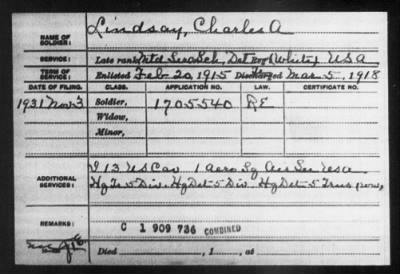 NAME OF SOLDIER: Lindsay, Charles A
SERVICE: Late rank, Det (White) USA
TERM OF SERVICE: Enlisted Feb 20, 1915 Discharged Mar 5, 1918
DATE OF FILING. CLASS. APPLICATION NO. LAW. CERTIFICATE NO.
1931 Nov 3 Soldier, 1705540 RE
Widow,
Minor,
I 13 US Cav 1 Aero Sq
ADDITIONAL SERVICES: Hq Tr 5 Div Hq Det 5 Div Hq Det 5
REMARKS: C 1 909 736 COMBINED
Died , 1 , at